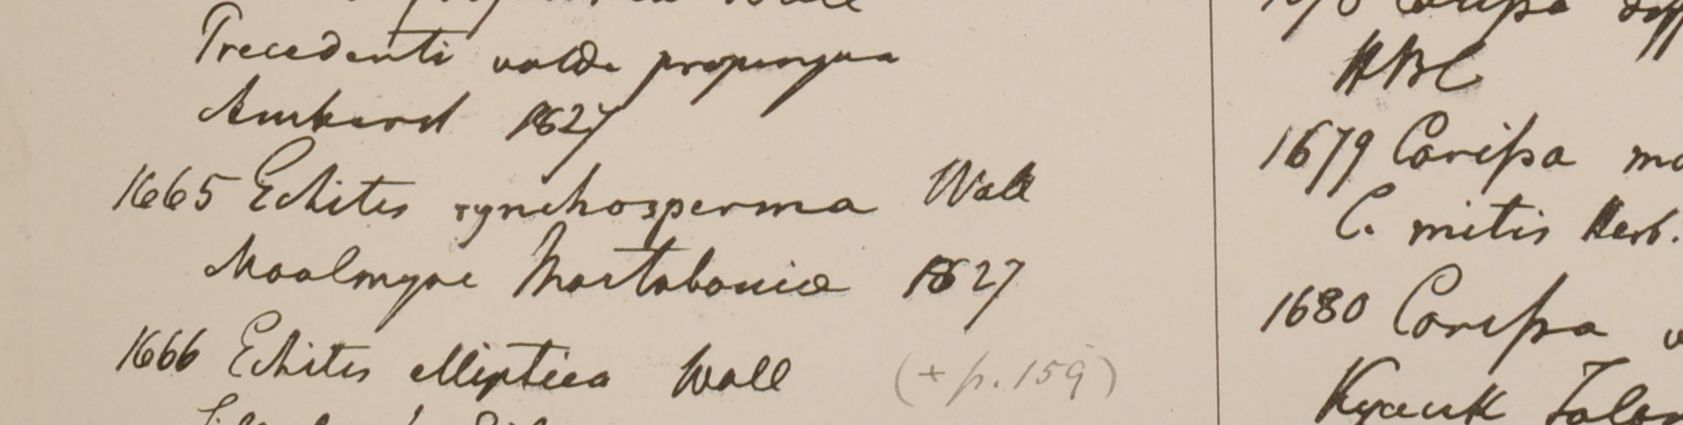 Precedenti valde propinqua
Amherst 1827
1665 Echites rynchosperma Wall
Moalmyne Martabaniae 1827
1666 Echites elliptica Wall (+ p. 159)
HBC
1679 Carissa
C. mitis Herb.
1680 Carissa
Kyauk